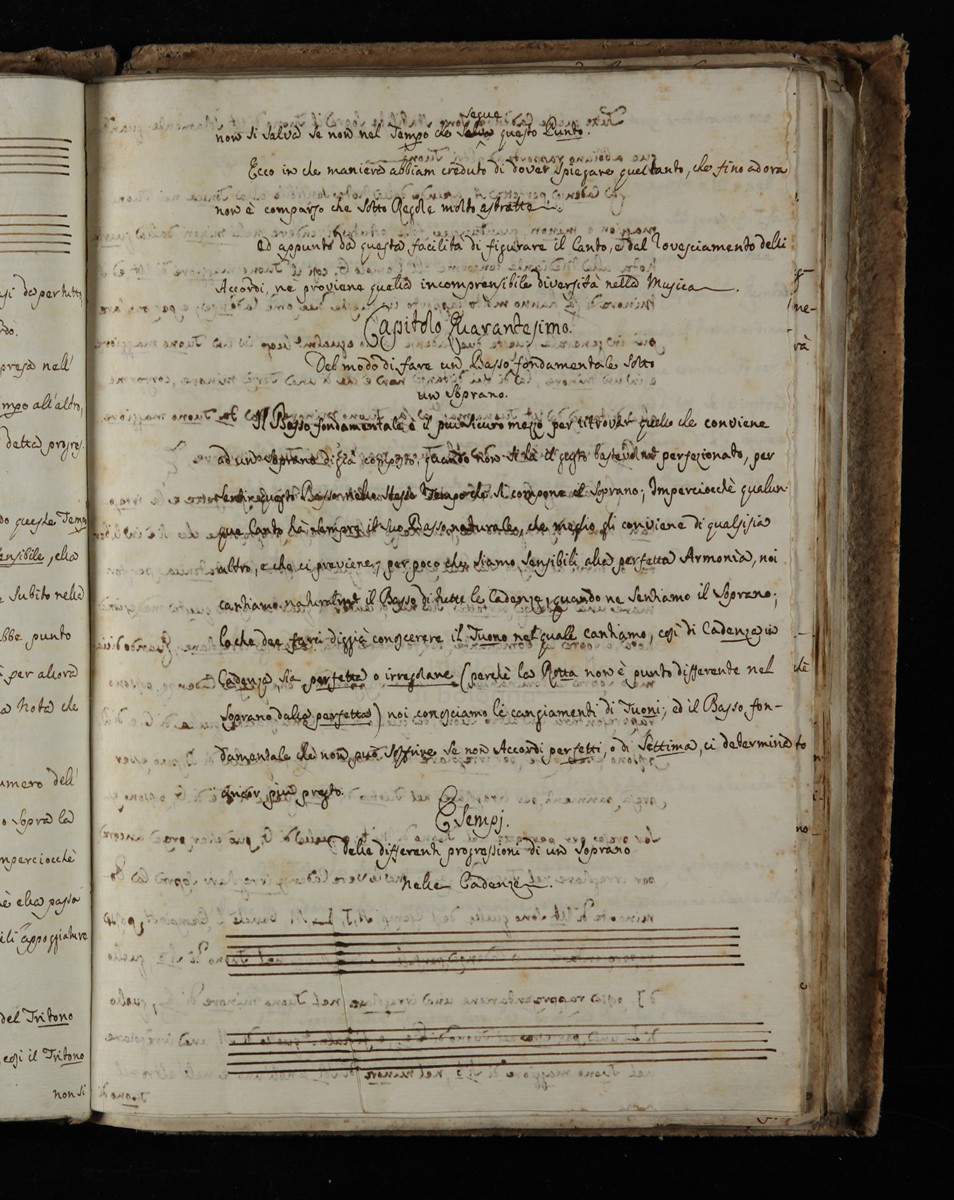 si da per tutto
do.
presa nell'
mpo all'altro,
detta progres.
do questa Temp
ensibile, ella
subito nella
bbe punto
per allora
a Nota che
umero dell'
o sopra la
mperciocchè
è ella passa
ili appoggiature
del Tritono
così il Tritono
non si
segue
non si salva se non nel Tempo che questo Punto.
Ecco in che maniera abbiam creduto di dover spiegare quel tanto, che fino ad ora
non è comparso che sotto Regole molto astratte.
Ed appunto da questa facilità di figurare il Canto, e dal rovesciamento delli
Accordi, ne proviene quella incomprensibile diversità nella Musica.
Capitolo Quarantesimo.
Del modo di fare un Basso fondamentale sotto
un Soprano.
Il Basso fondamentale è il più sicuro mezzo per ritrovar quello che conviene
ad un Soprano di già composto, quando non si à il gusto bastevolmte perfezionato, per
questo Basso nello stesso Tempo che si compone il Soprano; Imperciocchè qualun-
que Canto hà sempre il suo Basso naturale, che meglio gli conviene di qualsisia
altro, e che ci previene, per poco che siamo sensibili alla perfetta Armonia, noi
cantiamo naturalmte il Basso di tutte le Cadenze, quando ne sentiamo il Soprano;
lo che dee farci di già conoscere il Tuono nel quale cantiamo, così di Cadenza in
Cadenza, sia perfetta o irregolare (perchè la Rotta non è punto differente nel
Soprano dalla perfetta) noi conosciamo li cangiamenti di Tuoni; ed il Basso fon-
damentale che non può soffrire se non Accordi perfetti, o di Settima, ci determina
ancor più presto.
Esempj.
Delle differenti progressioni di un Soprano
nelle Cadenze.